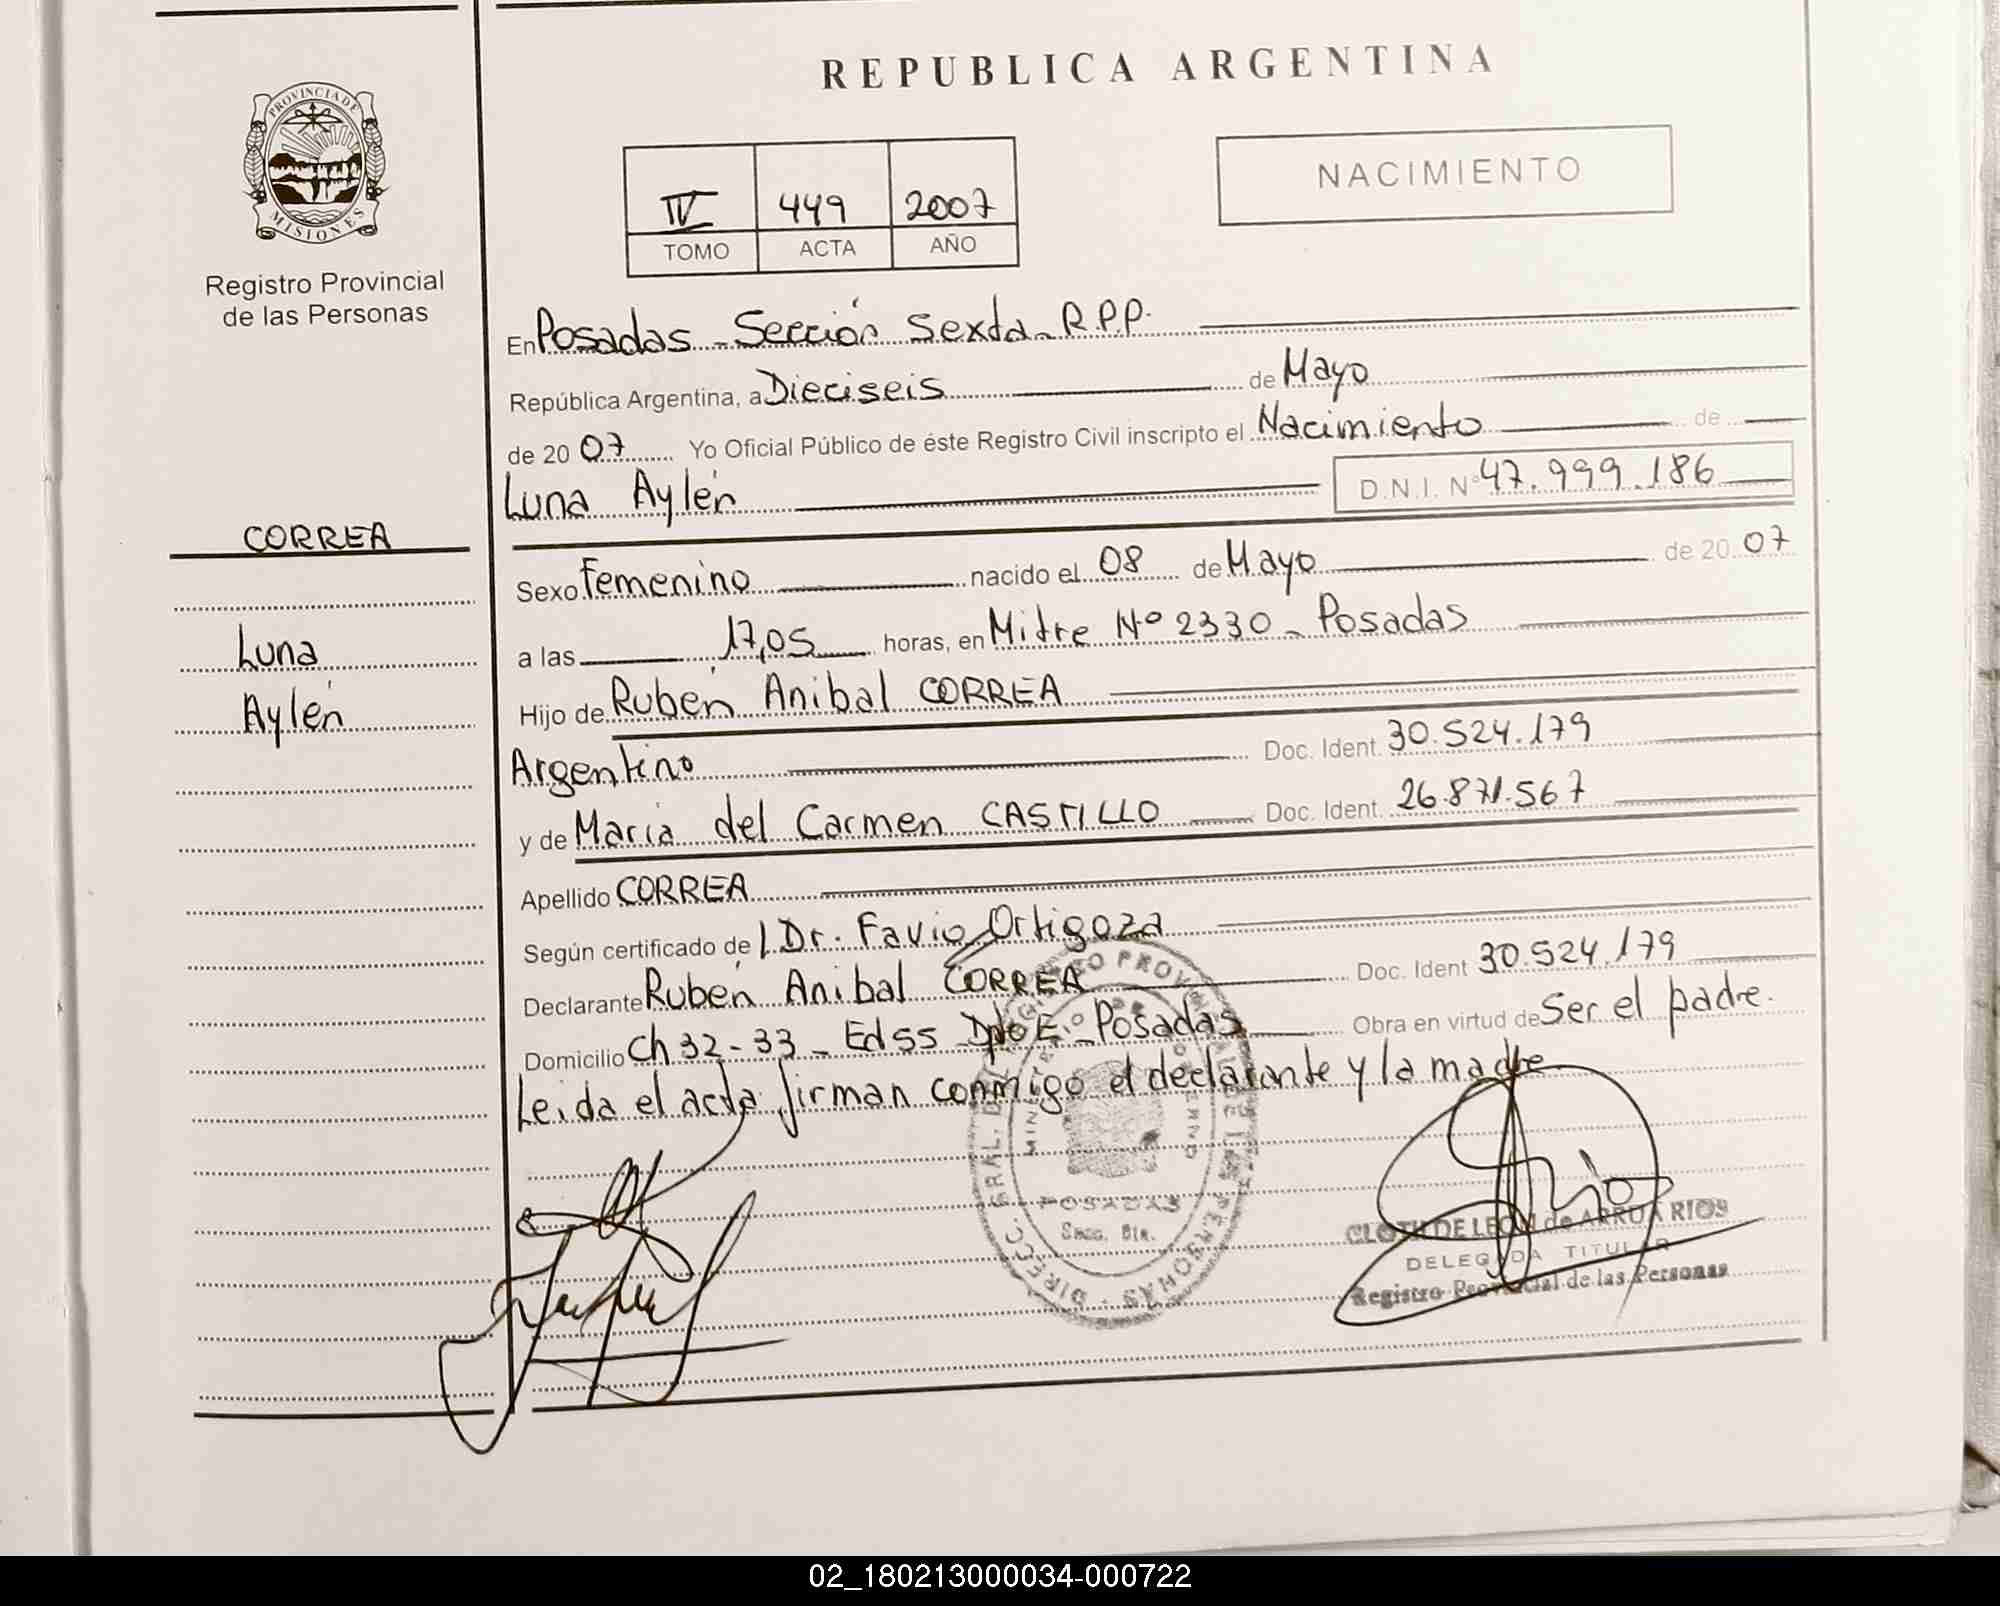 REPUBLICA ARGENTINA
PROVINCIA DE
MISIONES
Registro Provincial
de las Personas
IV 449 2007
TOMO ACTA AÑO
NACIMIENTO
En Posadas - Sección Sexta - R.P.P.
República Argentina, a Dieciseis de Mayo
de 20 07 Yo Oficial Público de éste Registro Civil inscripto el Nacimiento de
Luna Aylén D.N.I. Nº 47.999.186
CORREA
Luna
Aylén
Sexo Femenino nacido el 08 de Mayo de 20 07
a las 17,05 horas, en Mitre Nº 2330 - Posadas
Hijo de Rubén Anibal CORREA
Argentino Doc. Ident. 30.524.179
y de María del Carmen CASTILLO Doc. Ident. 26.871.567
Apellido CORREA
Según certificado de l Dr. Favio Ortigoza
Declarante Rubén Anibal CORREA Doc. Ident 30.524.179
Domicilio Ch 32-33 - Ed 55 Dpto E - Posadas Obra en virtud de Ser el padre.
Leida el acta firman conmigo el declarante y la madre
POSADAS
Secc. 6ta.
CLOTILDE LEON de ARRUA RIOS
DELEGADA TITULAR
Registro Provincial de las Personas
02_180213000034-000722